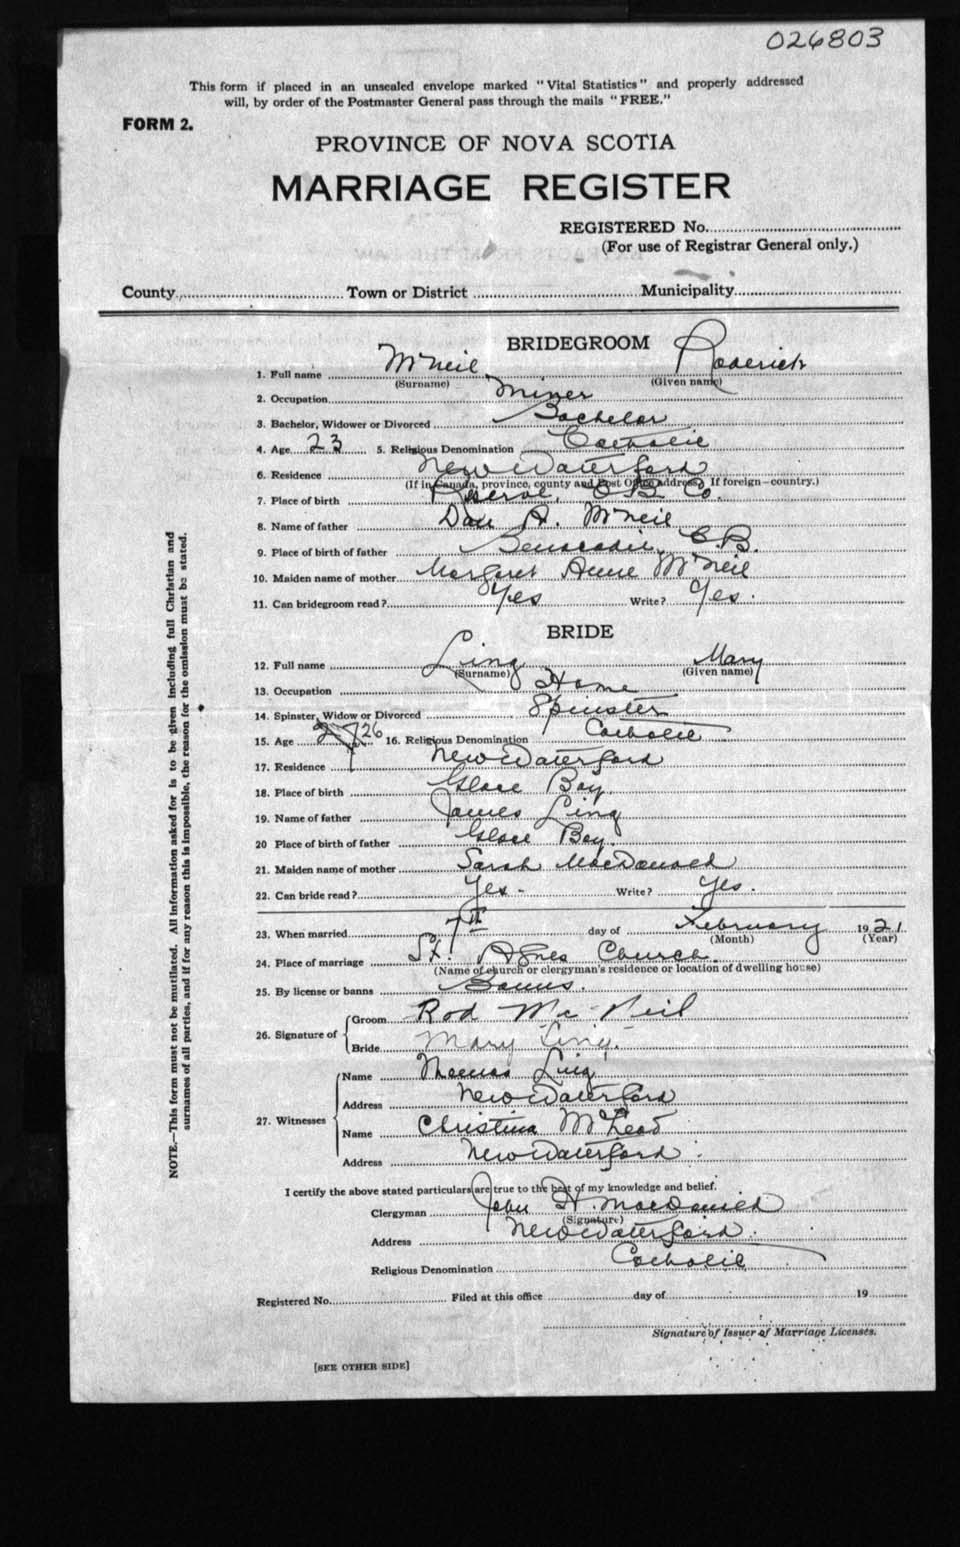 026803
This form if placed in an unsealed envelope marked "Vital Statistics" and properly addressed
will, by order of the Postmaster General pass through the mails "FREE."
FORM 2.
PROVINCE OF NOVA SCOTIA
MARRIAGE REGISTER
REGISTERED No.
(For use of Registrar General only.)
County Town or District Municipality
BRIDEGROOM
1. Full name McNeil Roderick
(Surname) (Given name)
2. Occupation Miner
3. Bachelor, Widower or Divorced Bachelor
4. Age 23 5. Religious Denomination Catholic
6. Residence New Waterford
(If in Canada, province, county and Post Office address. If foreign—country.)
7. Place of birth Reserve, C B Co.
8. Name of father Dan A. McNeil
9. Place of birth of father Benacadie, C.B.
10. Maiden name of mother Margaret Anne McNeil
11. Can bridegroom read? Yes Write? Yes.
BRIDE
12. Full name Ling Mary
(Surname) (Given name)
13. Occupation Home
14. Spinster, Widow or Divorced Spinster
15. Age 26 16. Religious Denomination Catholic
17. Residence New Waterford
18. Place of birth Glace Bay
19. Name of father James Ling
20 Place of birth of father Glace Bay.
21. Maiden name of mother Sarah MacDonald
22. Can bride read? Yes - Write? Yes.
23. When married 7th day of February 1921
(Month) (Year)
24. Place of marriage St. Agnes Church.
(Name of church or clergyman's residence or location of dwelling house)
25. By license or banns Banns.
26. Signature of Groom Rod McNeil
Bride Mary Ling.
27. Witnesses Name Thomas Ling
Address New Waterford
Name Christina McLeod
Address New Waterford.
I certify the above stated particulars are true to the best of my knowledge and belief.
Clergyman John H. MacDonald
(Signature)
Address New Waterford.
Religious Denomination Catholic
Registered No. Filed at this office day of 19
Signature of Issuer of Marriage Licenses.
[SEE OTHER SIDE]
NOTE.—This form must not be mutilated. All information asked for is to be given including full Christian and
surnames of all parties, and if for any reason this is impossible, the reason for the omission must be stated.